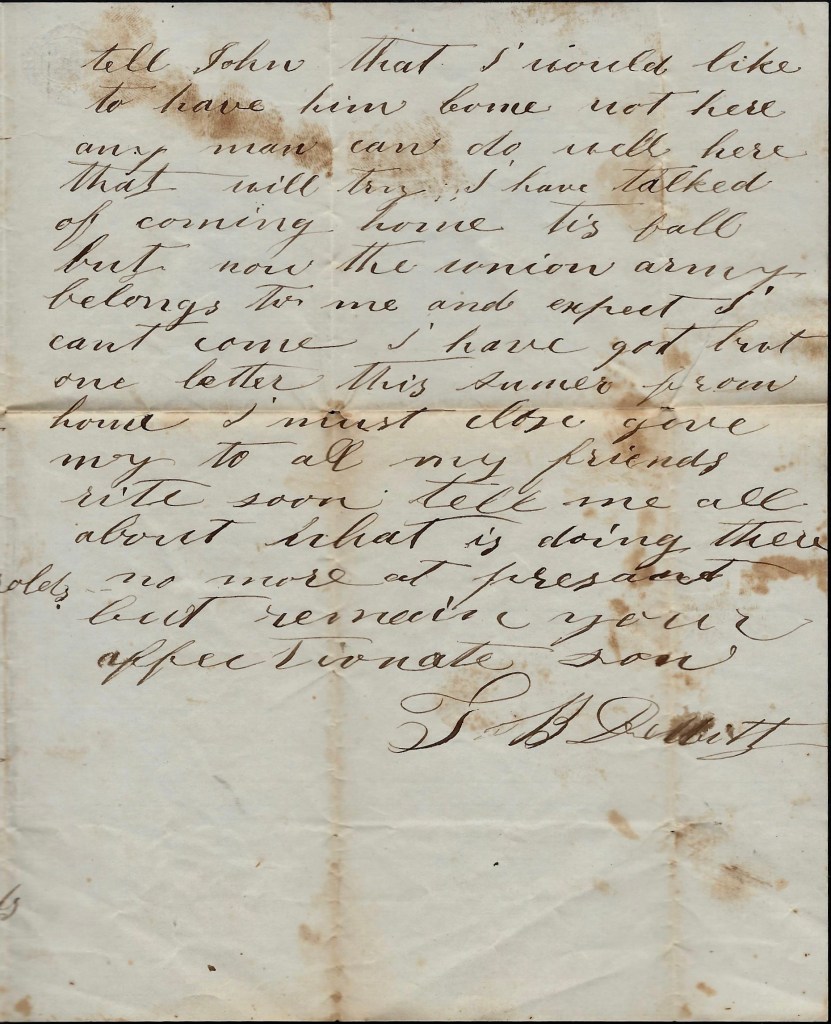 tell John that I would like
to have him come out here
any man can do well here
that will try I have talked
of coming home tis fall
but now the union army
belongs to me and expect I
cant come I have got but
one letter this sumer from
home I must close give
my to all my friends
rite soon tell me all
about what is doing there
no more at presant
but remain your
affectionate son
B